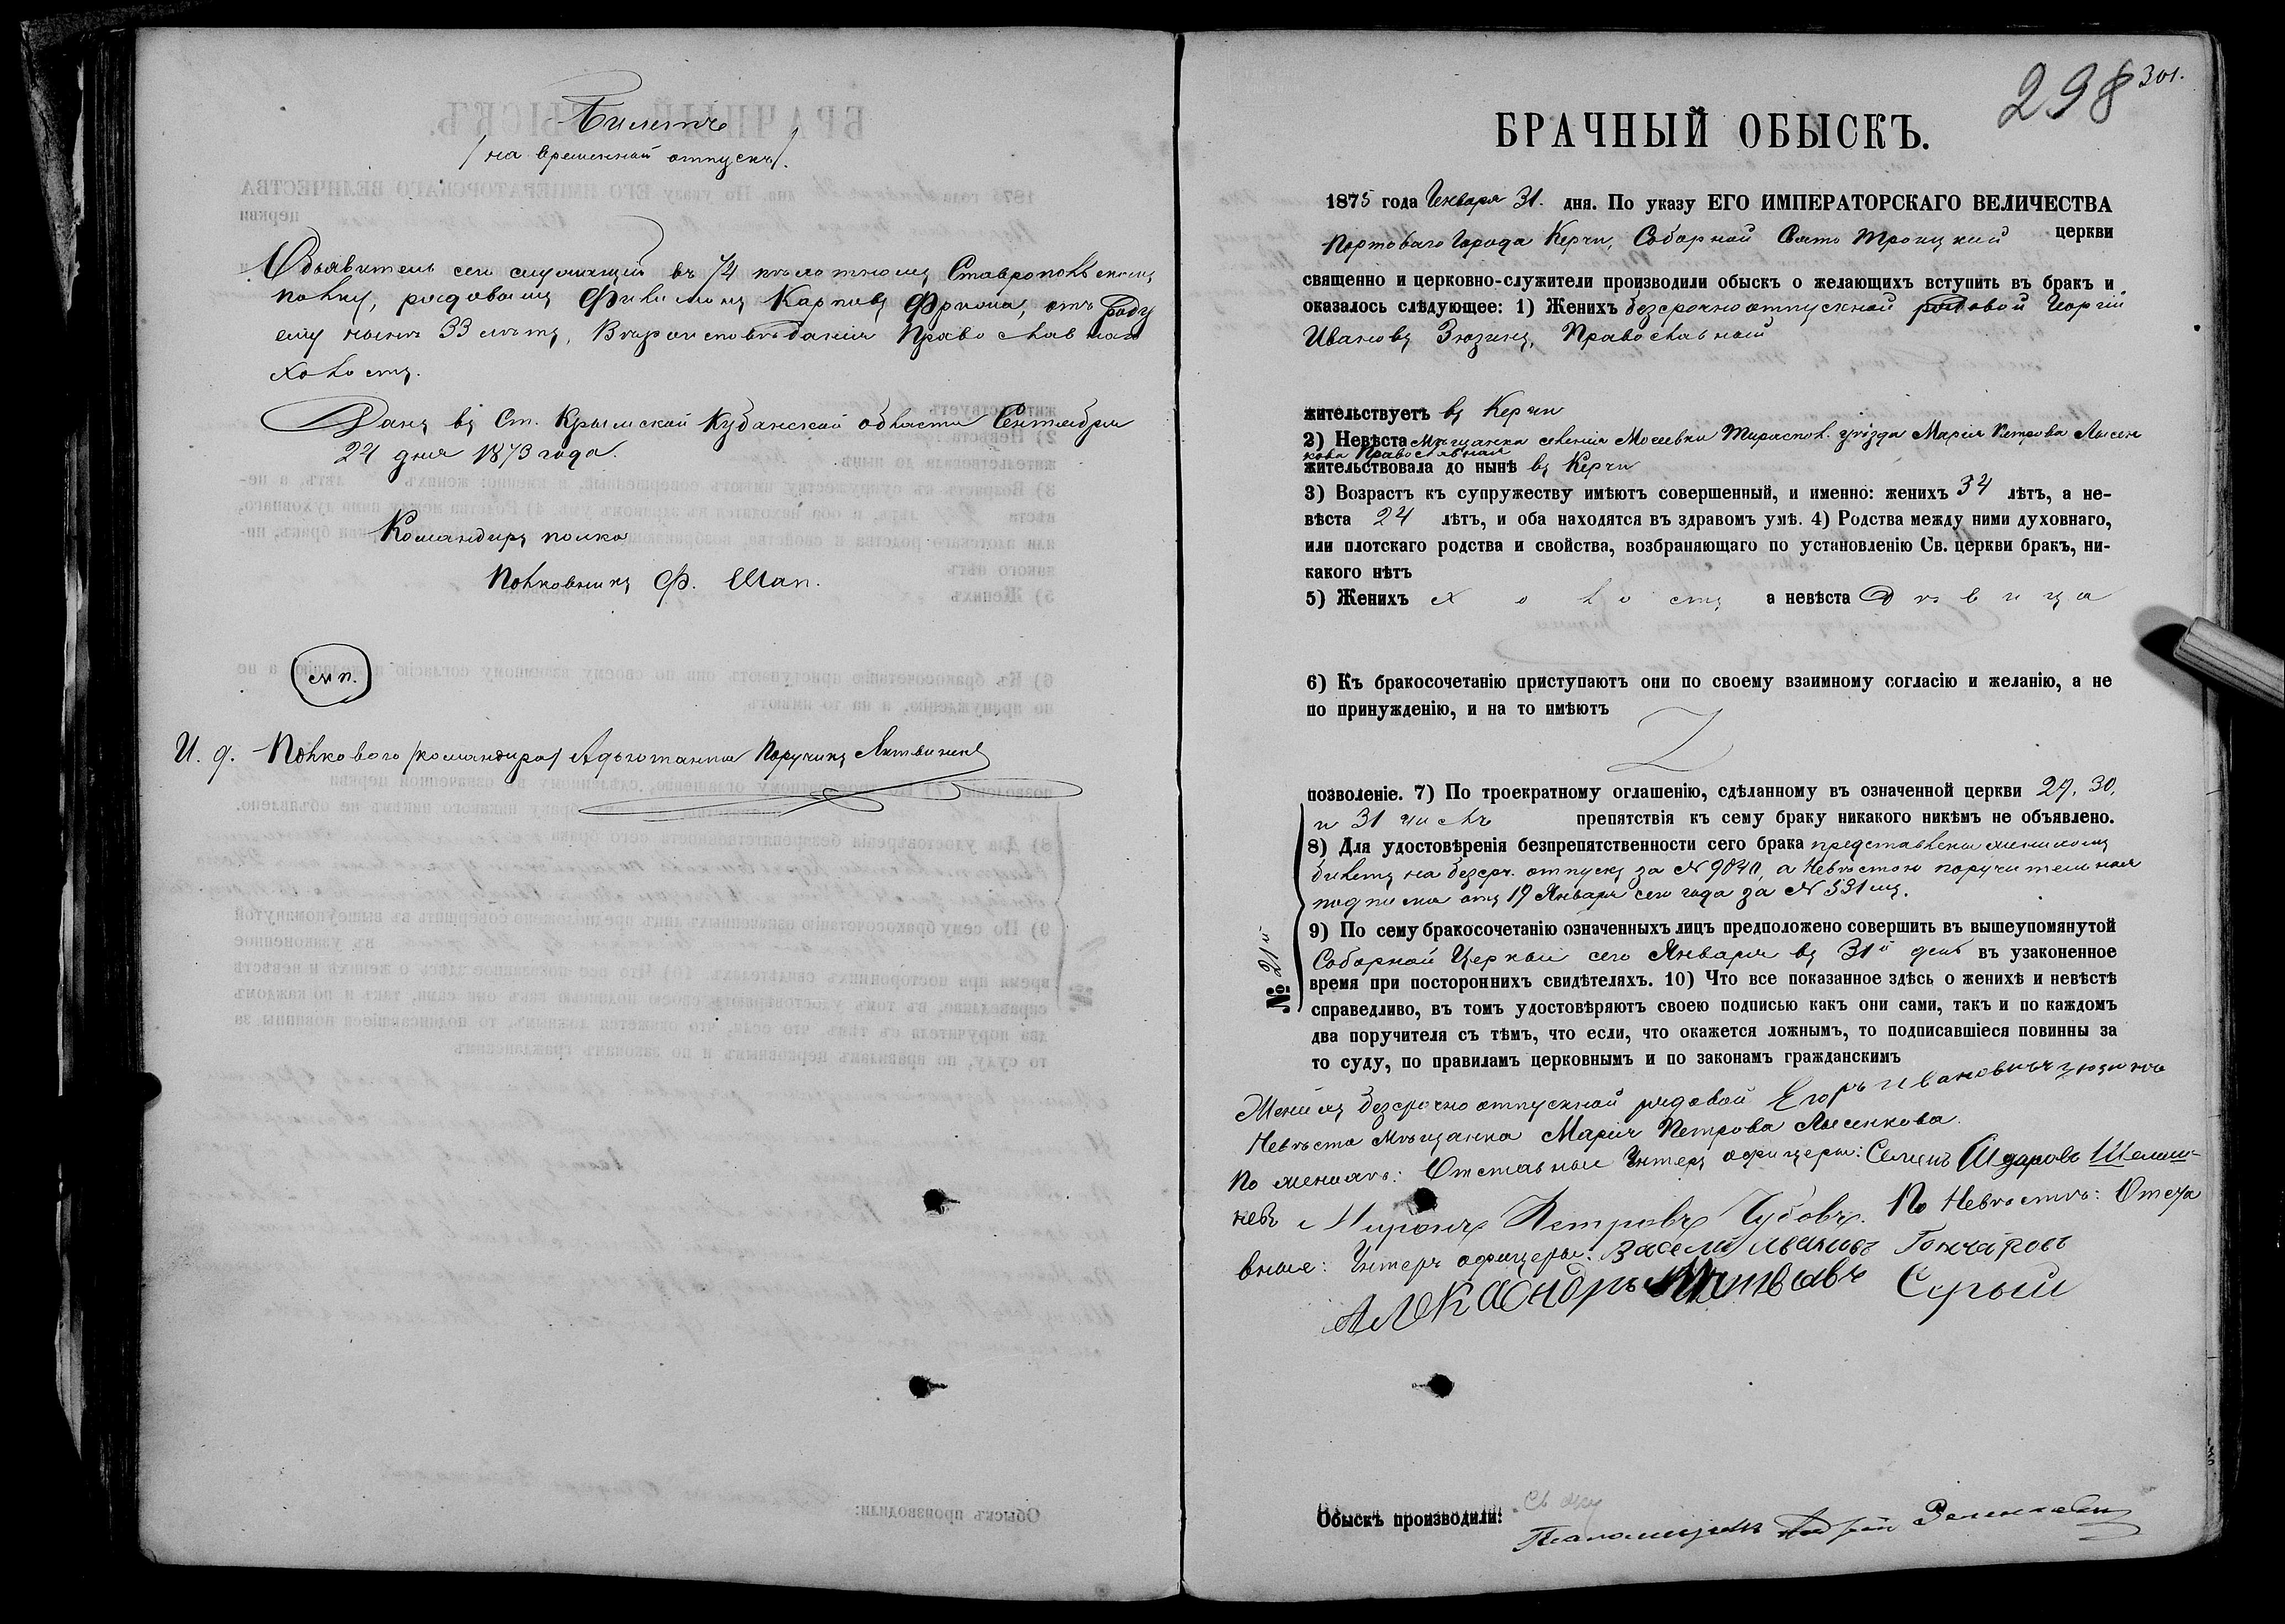 Билетъ
/на временный отпускъ/.
Объявитель сего служащий въ 74 пѣхотномъ Ставропольскомъ
полку, рядовымъ Филимонъ Карповъ отъ роду
ему нынѣ 33 лѣтъ, Вѣроисповѣданія Православнаго
холостъ.
Данъ въ Ст. Крымской Кубанской области Сентября
24 дня 1873 года.
Командиръ полка
Полковникъ Ф. Шап.
М п.
И. д. Полкового /командира/ Адъютанта Поручикъ Литвинек
298 301.
БРАЧНЫЙ ОБЫСКЪ.
1875 года Генваря 31. дня. По указу ЕГО ИМПЕРАТОРСКАГО ВЕЛИЧЕСТВА
Портоваго Города Керчи, Соборной Свято Троицкий церкви
священно и церковно-служители производили обыскъ о желающихъ вступить въ бракъ и
оказалось слѣдующее: 1) Женихъ безсрочноотпускной рядовой Георгій
Ивановъ Зюзинъ, Православный
жительствуетъ въ Керчи
2) Невѣста Мѣщанка селенія Моисевки Тираспол. уѣзда Марія Петрова Лысен
кова Православная
жительствовала до нынѣ въ Керчи
3) Возрастъ къ супружеству имѣютъ совершенный, и именно: женихъ 34 лѣтъ, а не-
вѣста 24 лѣтъ, и оба находятся въ здравомъ умѣ. 4) Родства между ними духовнаго,
или плотскаго родства и свойства, возбраняющаго по установленію Св. церкви бракъ, ни-
какого нѣтъ
5) Женихъ холостъ а невѣста Дѣвица
6) Къ бракосочетанію приступаютъ они по своему взаимному согласію и желанію, а не
по принужденію, и на то имѣютъ
позволеніе. 7) По троекратному оглашенію, сдѣланному въ означенной церкви 29, 30,
и 31 числъ препятствія къ сему браку никакого никѣмъ не объявлено.
8) Для удостовѣренія безпрепятственности сего брака представлены женихомъ
билетъ на безср. отпускъ за N 9040, а Невѣстою поручительная
подписка отъ 19 Января сего года за N 531мъ.
9) По сему бракосочетанію означенныхъ лицъ предположено совершить въ вышеупомянутой
Соборной Церкви сего Января въ 31й день въ узаконенное
время при постороннихъ свидѣтеляхъ. 10) Что все показанное здѣсь о женихѣ и невѣстѣ
справедливо, въ томъ удостовѣряютъ своею подписью какъ они сами, такъ и по каждомъ
два поручителя съ тѣмъ, что если, что окажется ложнымъ, то подписавшіеся повинны за
то суду, по правиламъ церковнымъ и по законамъ гражданскимъ
№ 21й
Женихъ безсрочно отпускной рядовой Егоръ Ивановичъ Зюзинъ
Невѣста Мѣщанка Марія Петрова Лысенкова.
По женихѣ: Отставные Унтеръ офицеры: Семенъ
невъ Миронъ Петровъ Чубовъ. По Невѣстѣ: Отста
вные: Унтеръ офицеры: Васели Ивановъ Гончаровъ
Александръ Матвѣевъ Сѣрый
Обыскъ производили: